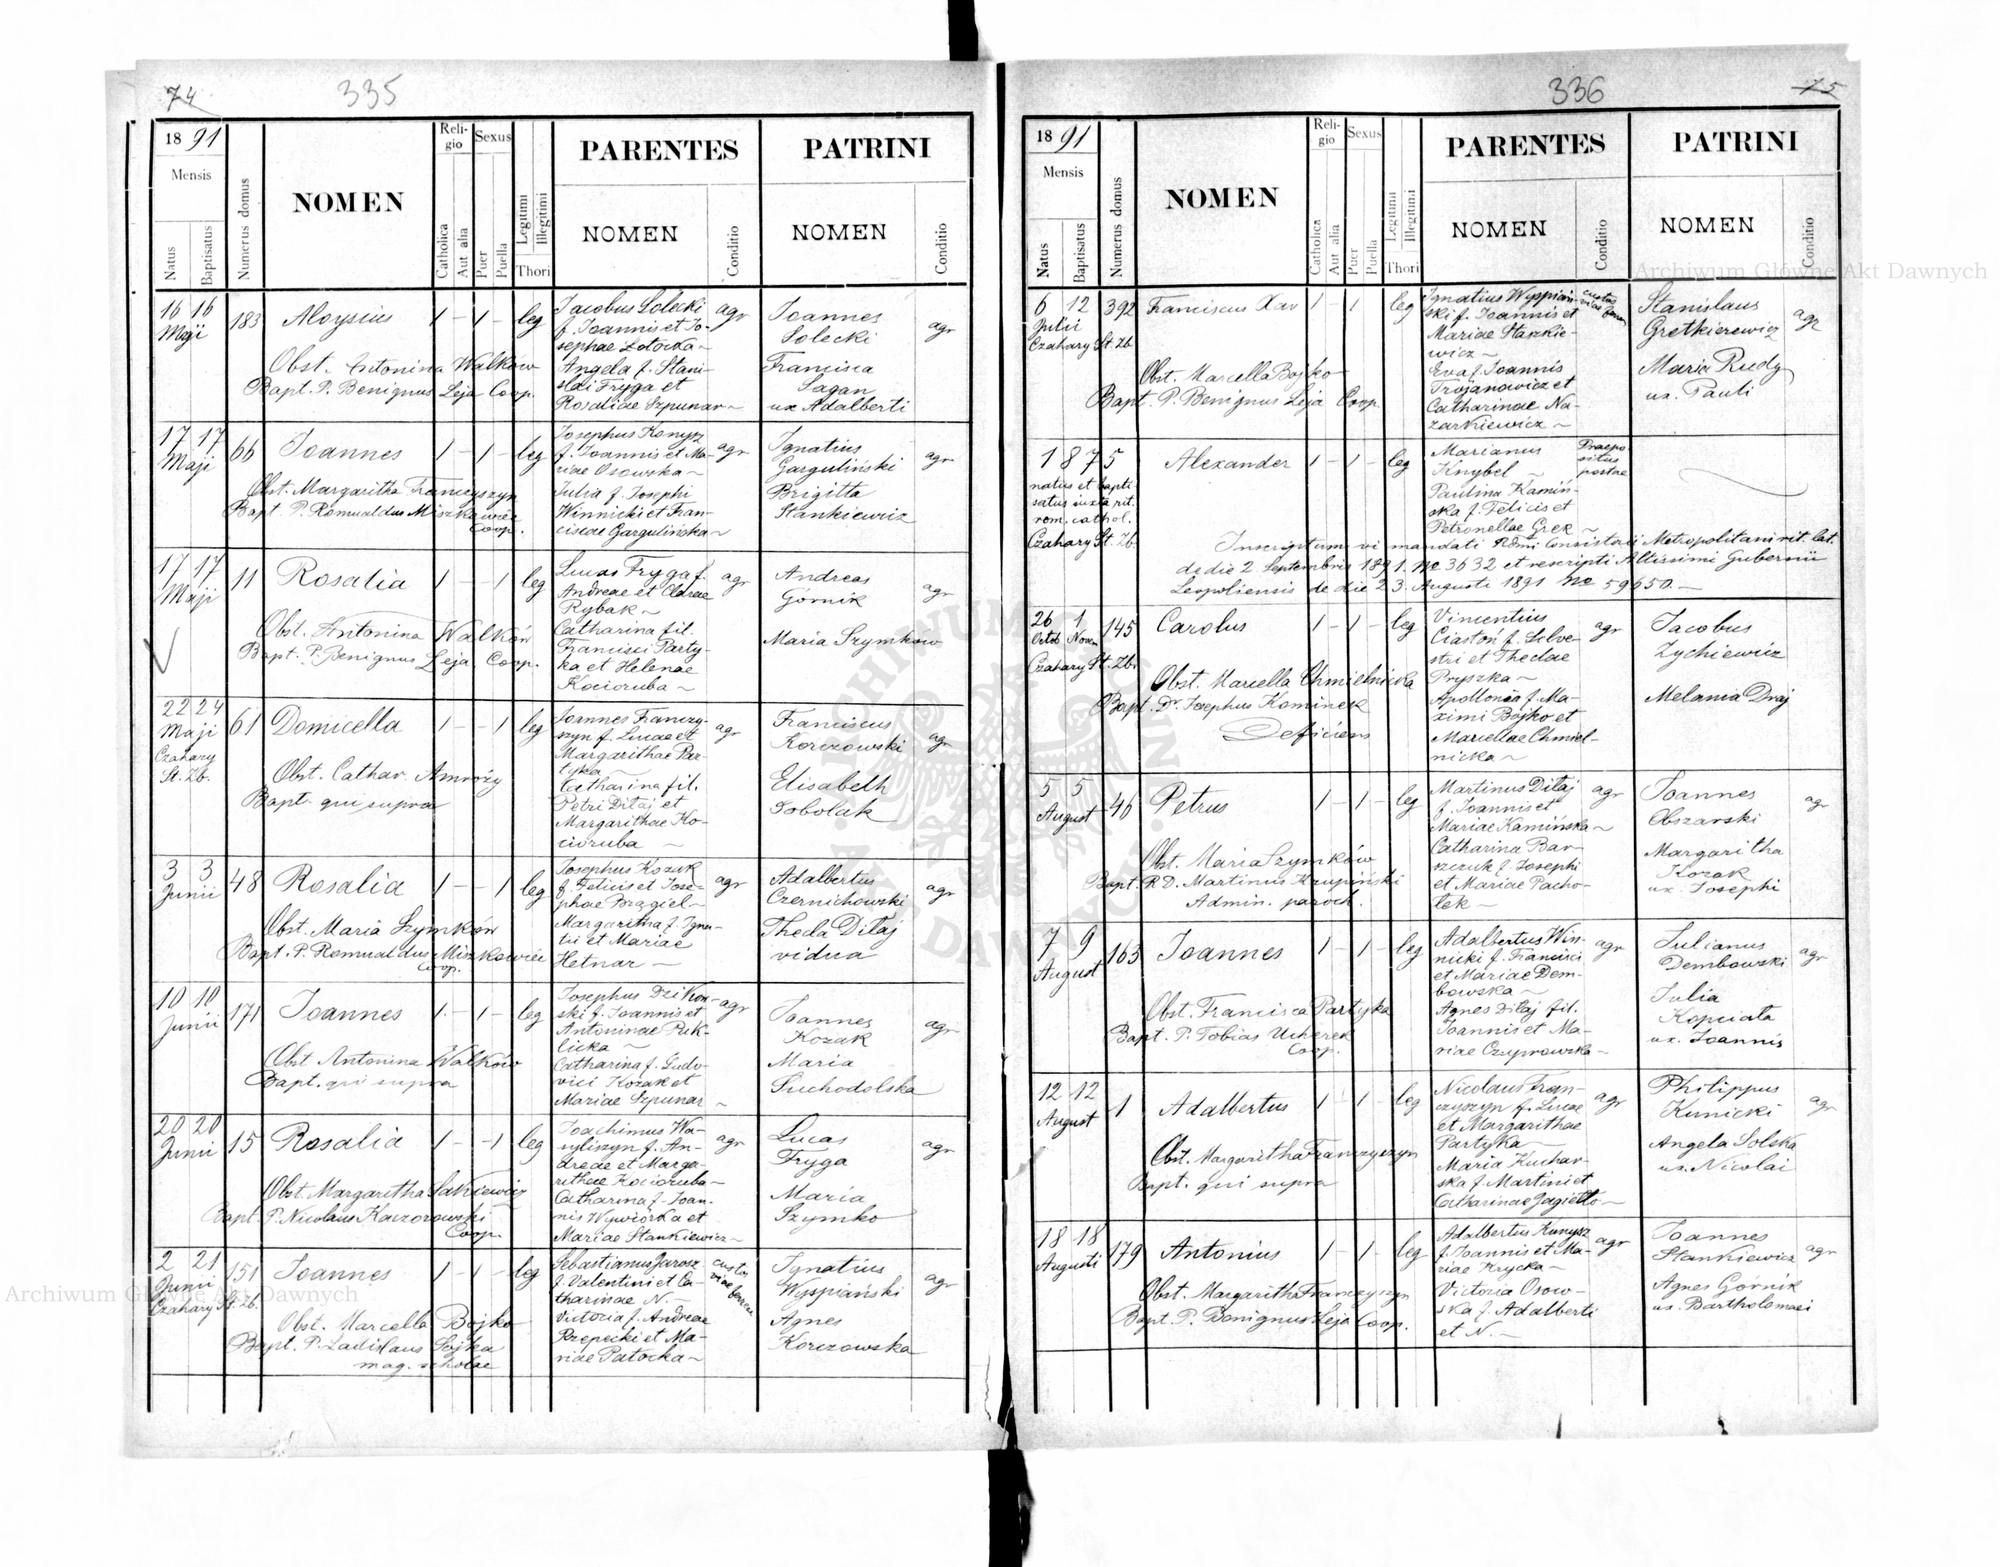 74
335
18 91
Mensis
Natus
Baptisatus
Numerus domus
NOMEN
Reli-
gio
Catholica
Aut alia
Sexus
Puer
Puella
Legitimi
Illegitimi
Thori
PARENTES
NOMEN
Conditio
PATRINI
NOMEN
Conditio
16 16
Maji
183
Aloysius
1 - 1 -
leg
Jacobus Solecki
f. Joannis et Jo-
sephae Lotocka
Angela f. Stani-
slai Fryga et
Rosaliae Szpunar
agr
Joannes
Solecki
Francisca
Łagan
ux Adalberti
agr
Obst. Antonina Walków
Bapt. P. Benignus Leja Coop.
17 17
Maji
66
Joannes
1 - 1 -
leg
Josephus Konysz
f. Joannis et Ma-
riae Osowska
Julia f. Josephi
Winnicki et Fran-
ciscae Gargulińska
agr
Ignatius
Garguliński
Brigitta
Stankiewicz
agr
Obst. Margaritha Franczyszyn
Bapt. P. Romualdus Miszkiewicz
Coop.
17 17
Maji
11
Rosalia
1 - - 1
leg
Lucas Fryga f.
Andreae et Clarae
Rybak
Catharina fil.
Francisci Party-
ka et Helenae
Kocioruba
agr
Andreas
Górnik
Maria Szymkow
agr
Obst. Antonina Walków
Bapt. P. Benignus Leja Coop.
22 24
Maji
Czahary
St. Zb.
61
Domicella
1 - - 1
leg
Joannes Franczy-
szyn f. Lucae et
Margarithae Par-
tyka
Catharina fil.
Petri Ditaj et
Margarithae Ko-
cioruba
agr
Franciscus
Korczowski
Elisabeth
Sobolak
agr
Obst. Cathar. Amroży
Bapt. qui supra
3 3
Junii
48
Rosalia
1 - - 1
leg
Josephus Kozak
f. Felicis et Jose-
phae Brągiel
Margaritha f. Igna-
tii et Mariae
Hetnar
agr
Adalbertus
Czernichowski
Thecla Ditaj
vidua
agr
Obst. Maria Szymków
Bapt. P. Romualdus Miszkowiei
Coop.
10 10
Junii
171
Joannes
1 - 1 -
leg
Josephus Dzikow-
ski f. Joannis et
Antoninae Puk-
licka
Catharina f. Ludo-
vici Kozak et
Mariae Szpunar
agr
Joannes
Kozak
Maria
Suchodolska
agr
Obst Antonina Walków
Bapt. qui supra
20 20
Junii
15
Rosalia
1 - - 1
leg
Joachimus Wa-
syliszyn f. An-
dreae et Marga-
rithae Kocioruba
Catharina f. Joan-
nis Wywiórka et
Mariae Stankiewicz
agr
Lucas
Fryga
Maria
Szymko
agr
Obst. Margaritha Sakiewicz
Bapt. P. Nicolaus Kaczorowski
Coop.
2 21
Junii
Czahary St. Zb.
151
Joannes
1 - 1 -
leg
Sebastianus Jarosz
f. Valentini et Ca-
tharinae N.
Victoria f. Andreae
Rzepecki et Ma-
riae Patocka
custos
viae ferreae
Ignatius
Wyspiański
Agnes
Korczowska
agr
Obst. Marcella Bojko
Bapt. P. Ladislaus Sojka
mag. scholae
336
75
18 91
Mensis
Natus
Baptisatus
Numerus domus
NOMEN
Reli-
gio
Catholica
Aut alia
Sexus
Puer
Puella
Legitimi
Illegitimi
Thori
PARENTES
NOMEN
Conditio
PATRINI
NOMEN
Conditio
6 12
Julii
Czahary St. Zb
392
Franciscus Xav
1 - 1
leg
Ignatius Wyspiań-
ski f. Joannis et
Mariae Staszkie-
wicz
Eva f. Joannis
Trojanowicz et
Catharinae Na-
zarkiewicz
custos
viae ferreae
Stanislaus
Gretkierewicz
Maria Rudy
ux. Pauli
agr
Obst. Marcella Bojko
Bapt. P. Benignus Leja Coop.
1875
natus et bapti-
satus iuxta rit.
rom. cathol.
Czahary St. Zb.
Alexander
1 - 1 -
leg
Marianus
Knybel
Paulina Kamiń-
ska f. Felicis et
Petronellae Grek
Praepo
situs
postae
Inscriptum vi mandati Rdmi Consistorii Metropolitani rit. lat.
de die 2 Septembris 1891. No 3632 et rescripti Altissimi Gubernii
Leopoliensis de die 23. Augusti 1891 No 59650.
26 1
Octob Novem
Czahary St. Zb.
145
Carolus
1 - 1 -
leg
Vincentius
Ciastoń f. Silve-
stri et Theclae
Pryszka
Apollonia f. Ma-
ximi Bojko et
Marcellae Chmiel-
nicka
agr
Jacobus
Zychiewicz
Melania Draj
Obst. Marcella Chmielnicka
Bapt. Dr. Josephus Kominek
Deficiens
5 5
August
46
Petrus
1 - 1 -
leg
Martinus Ditaj
f. Joannis et
Mariae Kamińska
Catharina Bar-
szczuk f. Josephi
et Mariae Pacho-
lek
agr
Joannes
Obszarski
Margaritha
Kozak
ux. Josephi
agr
Obst. Maria Szymków
Bapt. R. D. Martinus Krupiński
Admin. paroch.
7 9
August
163
Joannes
1 - 1 -
leg
Adalbertus Win-
nicki f. Francisci
et Mariae Dem-
bowska
Agnes Ditaj fil.
Joannis et Ma-
riae Czuprowska
agr
Julianus
Dembowski
Julia
Kopciata
ux. Joannis
agr
Obst. Francisca Partyka
Bapt. P. Tobias Ucherek
Coop.
12 12
August
1
Adalbertus
1 - 1 -
leg
Nicolaus Fran-
czyszyn f. Lucae
et Margarithae
Partyka
Maria Kuchar-
ska f. Martini et
Catharinae Jagiełło
agr
Philippus
Kunicki
Angela Solska
ux. Nicolai
agr
Obst. Margaritha Franczyszyn
Bapt. qui supra
18 18
Augusti
179
Antonius
1 - 1 -
leg
Adalbertus Kunysz
f. Joannis et Ma-
riae Krycka
Victoria Osow-
ska f. Adalberti
et N.
agr
Joannes
Stankiewicz
Agnes Górnik
ux. Bartholomaei
agr
Obst. Margaritha Franczyszyn
Bapt. P. Benignus Leja Coop.
Archiwum Główne Akt Dawnych
Archiwum Główne Akt Dawnych
ARCHIWUM GŁÓWNE AKT DAWNYCH